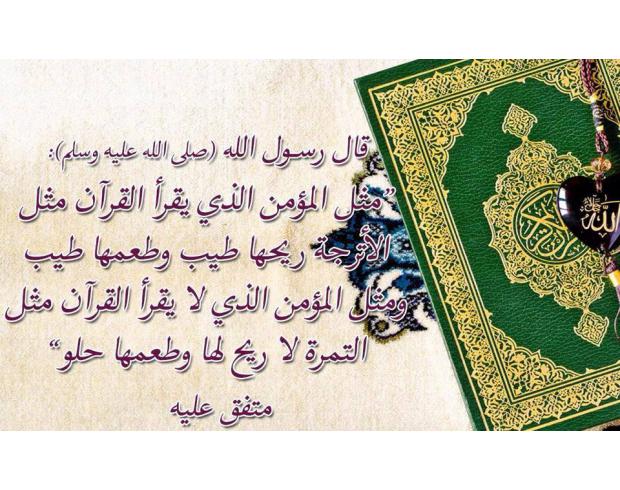 قال رسول الله (صلى الله عليه وسلم):
”مثل المؤمن الذي يقرأ القرآن مثل
الأترجة ريحها طيب وطعمها طيب
ومثل المؤمن الذي لا يقرأ القرآن مثل
التمرة لا ريح لها وطعمها حلو“
متفق عليه
الله